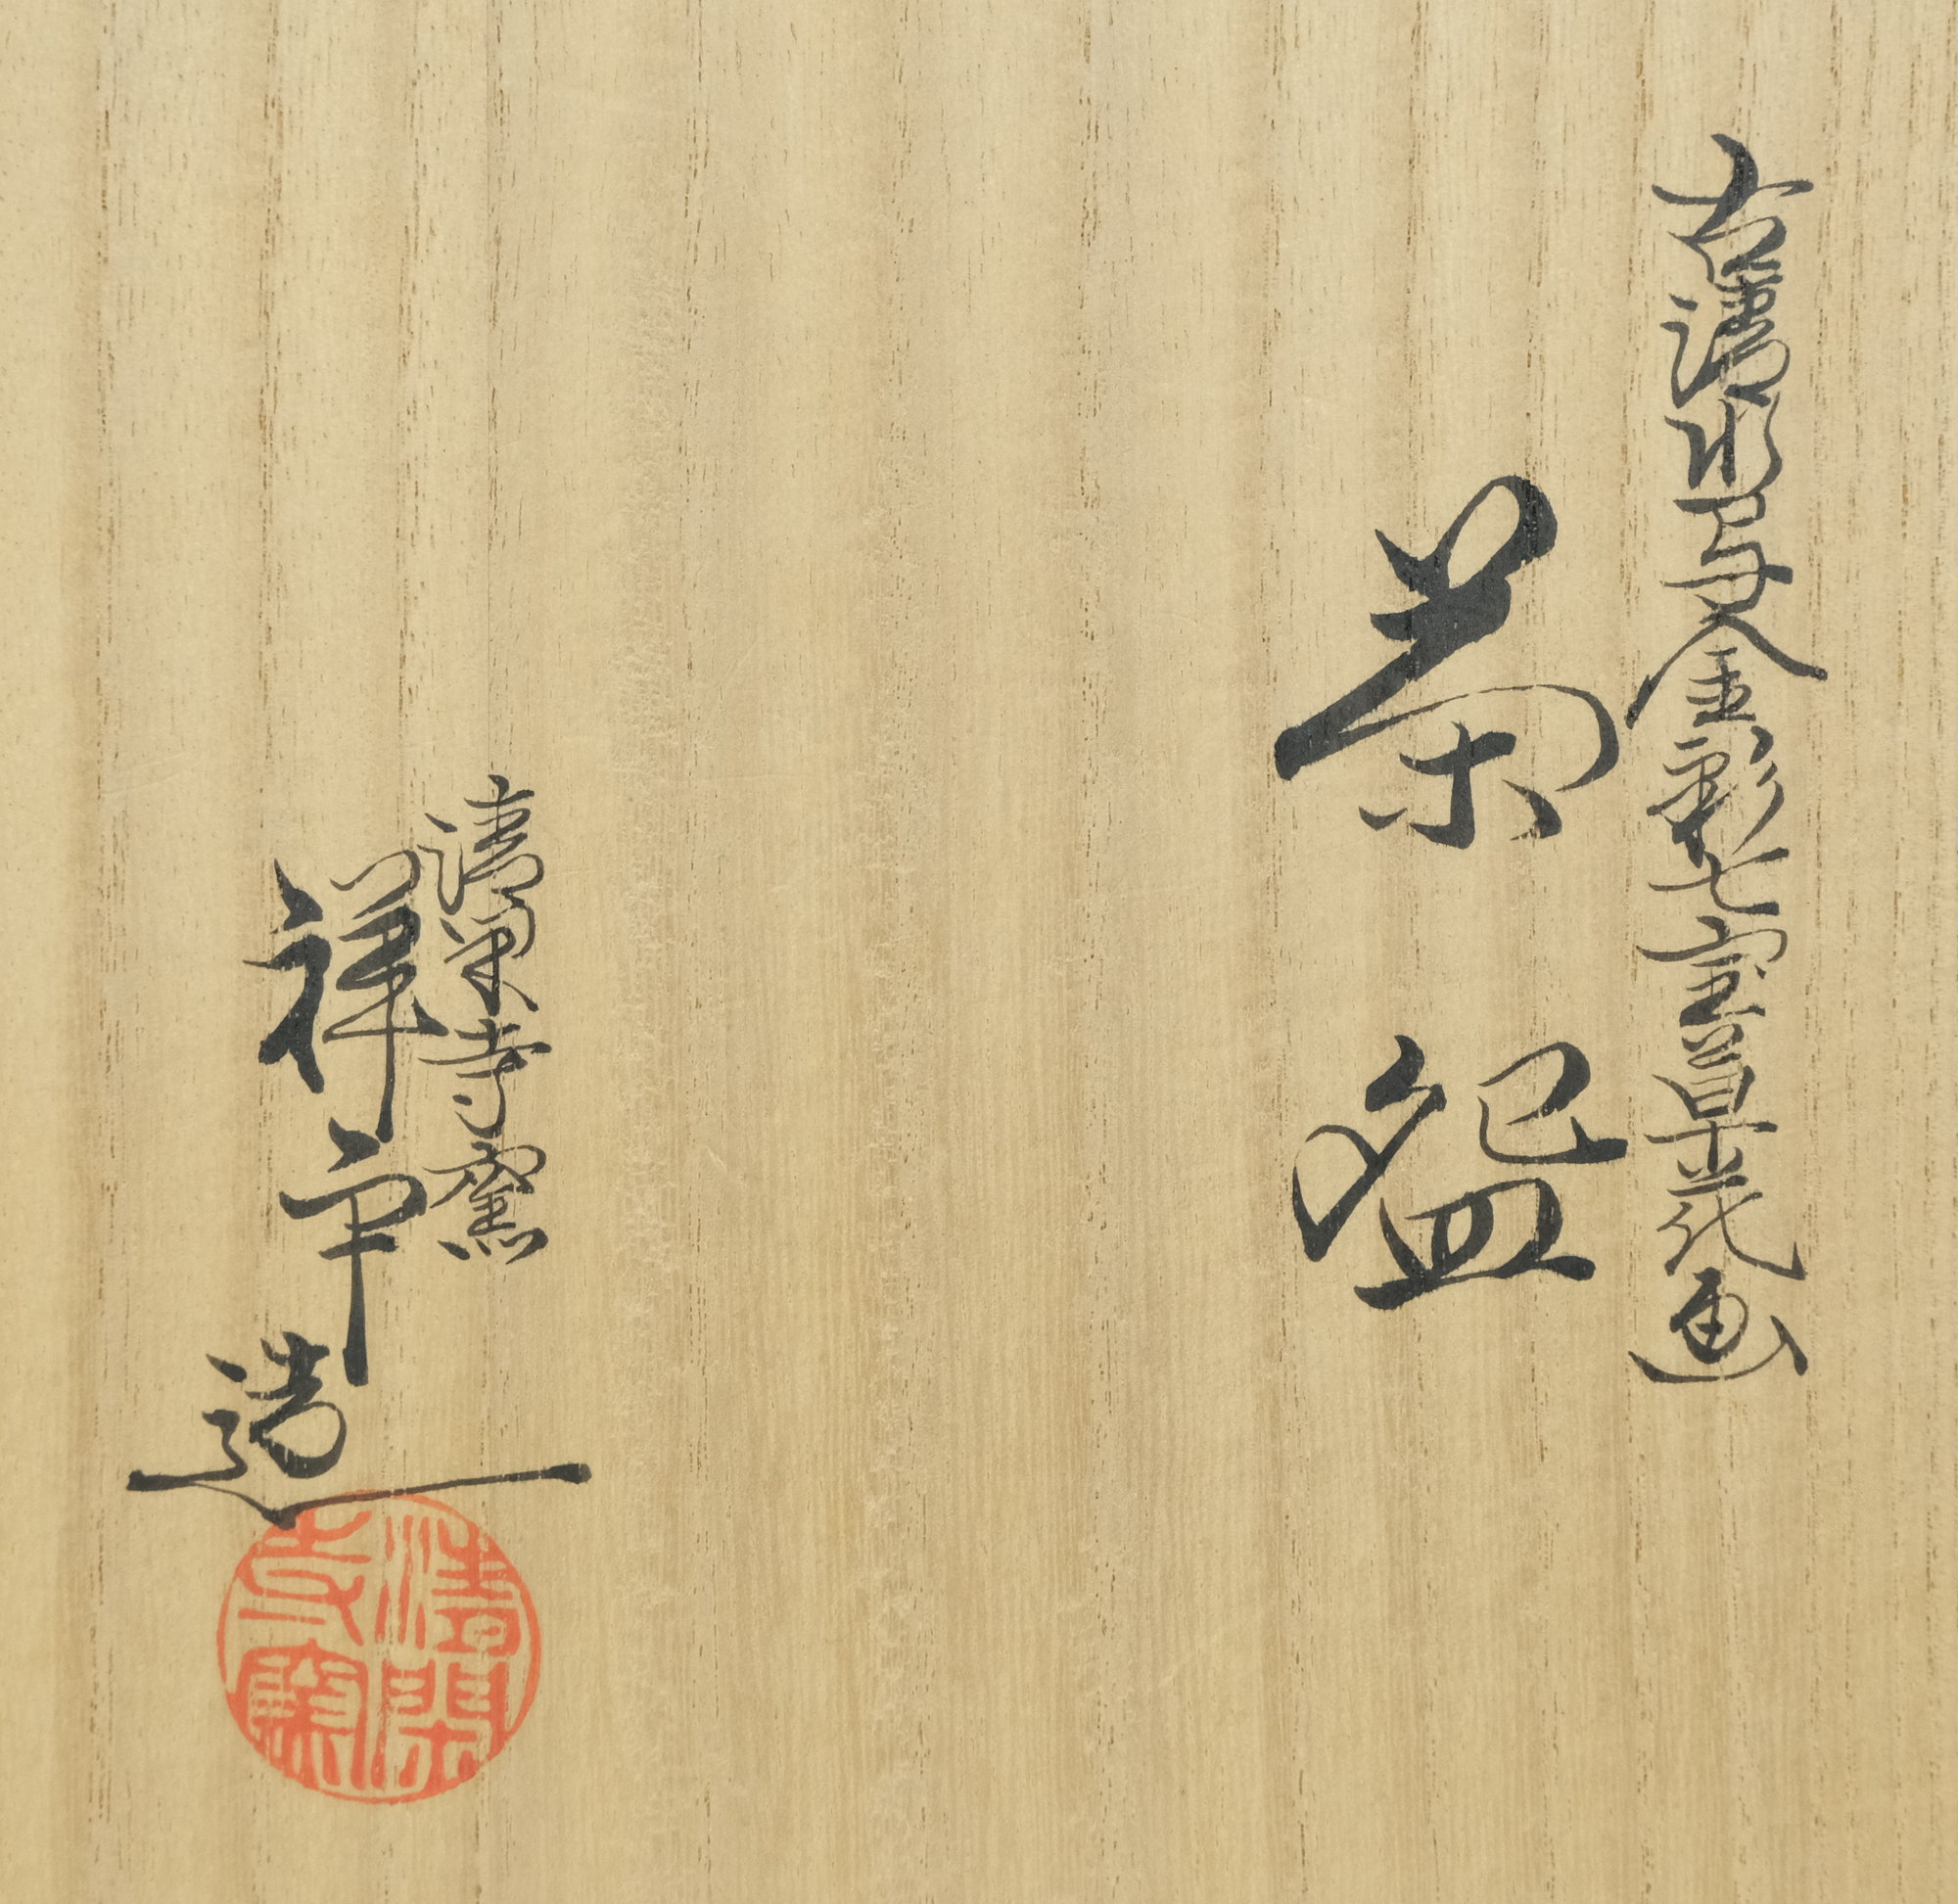 古清水写金彩七宝草花画
茶盌
清閑寺窯
祥平造
清閑寺窯